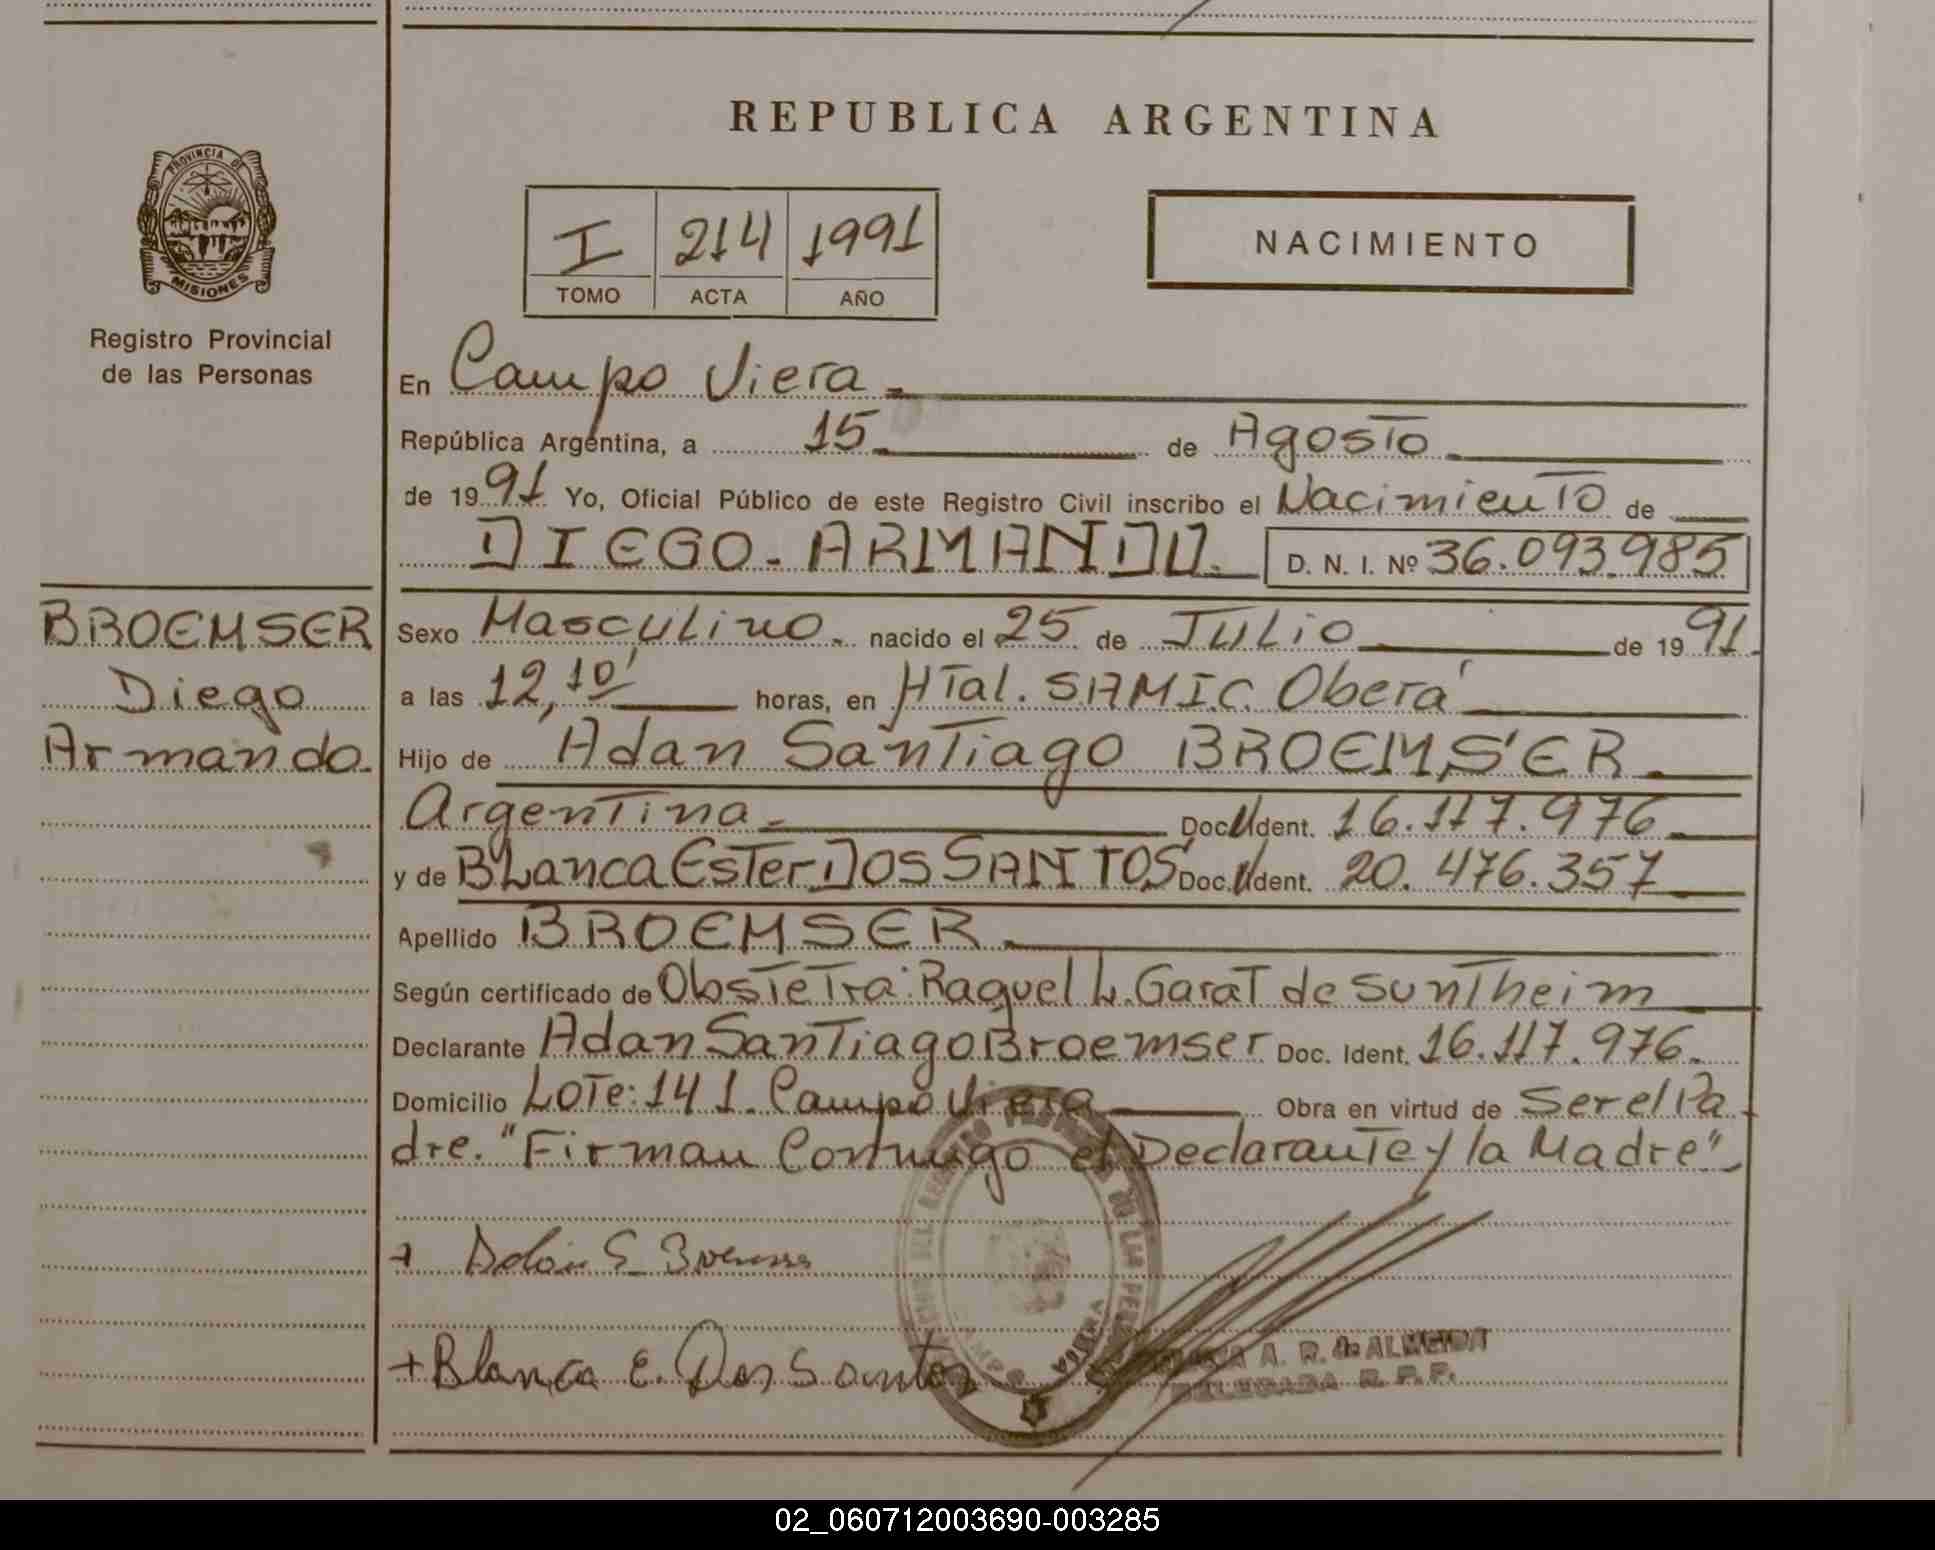 REPUBLICA ARGENTINA
PROVINCIA DE
MISIONES
Registro Provincial
de las Personas
I 214 1991
TOMO ACTA AÑO
NACIMIENTO
En Campo Viera
República Argentina, a 15 de Agosto
de 1991 Yo, Oficial Público de este Registro Civil inscribo el Nacimiento de
DIEGO-ARMANDO. D. N. I. Nº 36.093.985
BROEMSER
Diego
Armando.
Sexo Masculino. nacido el 25 de Julio de 1991
a las 12,10' horas, en HTal. S.A.M.I.C. Oberá
Hijo de Adan Santiago BROEMSER
Argentina. Doc. Ident. 16.117.976
y de Blanca Ester DOS SANTOS Doc. Ident. 20.476.357
Apellido BROEMSER
Según certificado de Obstetra: Raquel L. Garat de Suntheim
Declarante Adan Santiago Broemser Doc. Ident. 16.117.976.
Domicilio Lote: 141. Campo Viera Obra en virtud de Ser el Pa
dre. "Firman Conmigo el Declarante y la Madre"
+ Adán S
+ Blanca E. Dos Santos
A. R. de ALMEIDA
DELEGADA R. P. P.
02_060712003690-003285